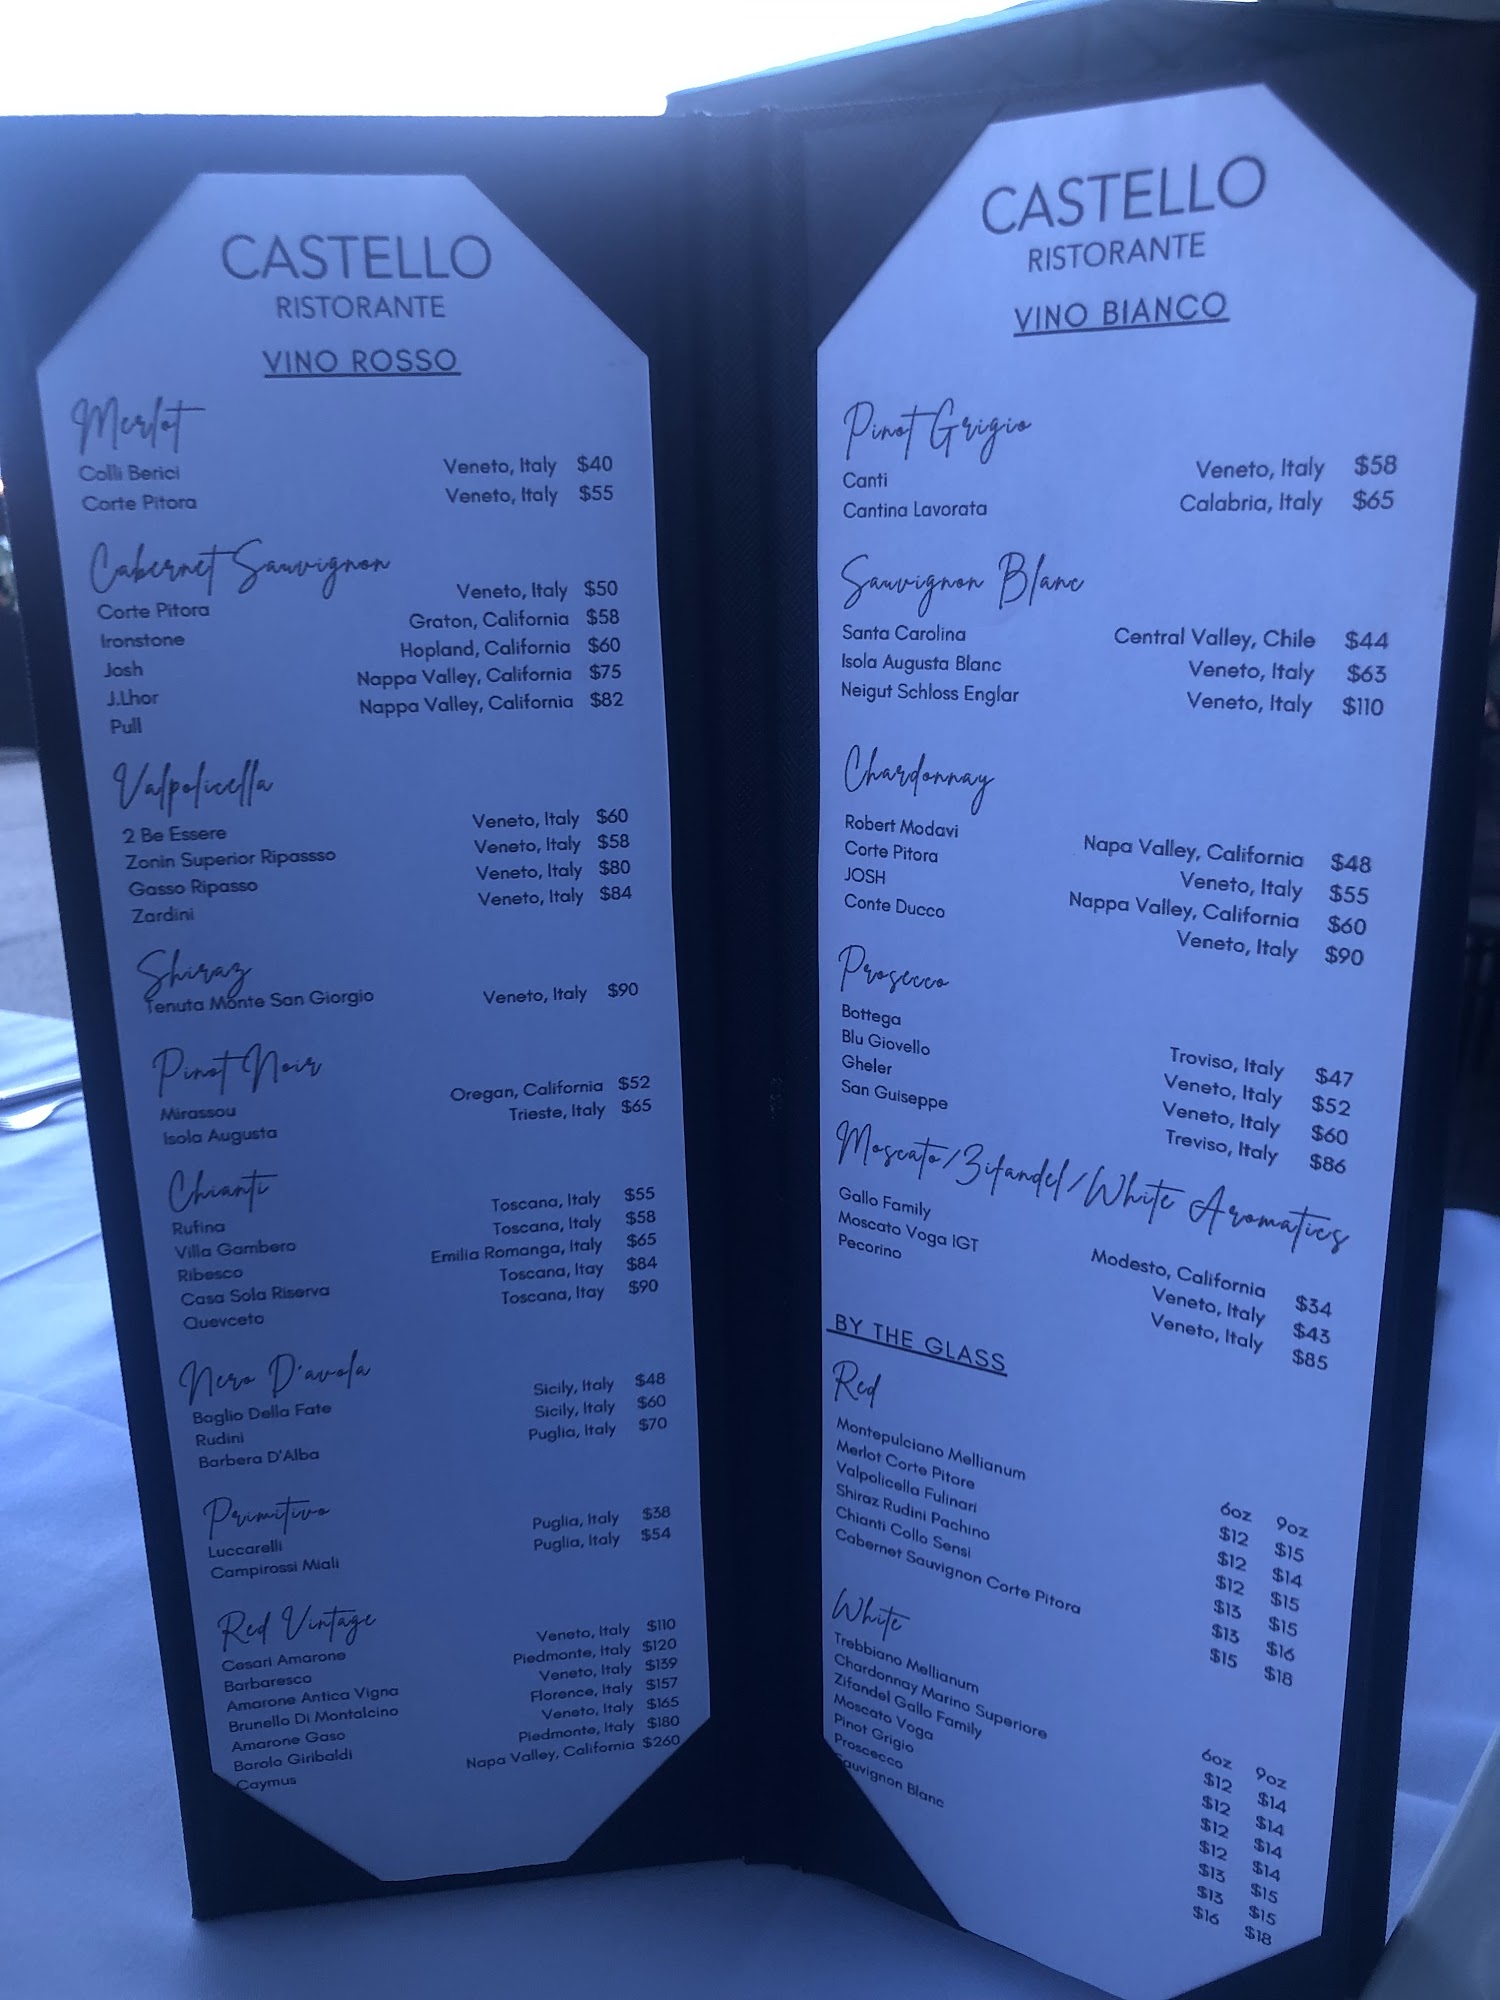 CASTELLO
RISTORANTE
VINO ROSSO
Merlot
Colli Berici Veneto, Italy $40
Corte Pitora Veneto, Italy $55
Cabernet Sauvignon
Corte Pitora Veneto, Italy $50
Ironstone Graton, California $58
Josh Hopland, California $60
J.Lhor Nappa Valley, California $75
Pull Nappa Valley, California $82
Valpolicella
2 Be Essere Veneto, Italy $60
Zonin Superior Ripassso Veneto, Italy $58
Gasso Ripasso Veneto, Italy $80
Zardini Veneto, Italy $84
Shiraz
Tenuta Monte San Giorgio Veneto, Italy $90
Pinot Noir
Mirassou Oregan, California $52
Isola Augusta Trieste, Italy $65
Chianti
Rufina Toscana, Italy $55
Villa Gambero Toscana, Italy $58
Ribesco Emilia Romanga, Italy $65
Casa Sola Riserva Toscana, Itay $84
Quevceto Toscana, Itay $90
Nero D'avola
Baglio Della Fate Sicily, Italy $48
Rudini Sicily, Italy $60
Barbera D'Alba Puglia, Italy $70
Primitivo
Luccarelli Puglia, Italy $38
Campirossi Miali Puglia, Italy $54
Red Vintage
Cesari Amarone Veneto, Italy $110
Barbaresco Piedmonte, Italy $120
Amarone Antica Vigna Veneto, Italy $139
Brunello Di Montalcino Florence, Italy $157
Amarone Gaso Veneto, Italy $165
Barolo Giribaldi Piedmonte, Italy $180
Caymus Napa Valley, California $260
CASTELLO
RISTORANTE
VINO BIANCO
Pinot Grigio
Canti Veneto, Italy $58
Cantina Lavorata Calabria, Italy $65
Sauvignon Blanc
Santa Carolina Central Valley, Chile $44
Isola Augusta Blanc Veneto, Italy $63
Neigut Schloss Englar Veneto, Italy $110
Chardonnay
Robert Modavi Napa Valley, California $48
Corte Pitora Veneto, Italy $55
JOSH Nappa Valley, California $60
Conte Ducco Veneto, Italy $90
Prosecco
Bottega Troviso, Italy $47
Blu Giovello Veneto, Italy $52
Gheler Veneto, Italy $60
San Guiseppe Treviso, Italy $86
Moscato/Zifandel/White Aromatics
Gallo Family Modesto, California $34
Moscato Voga IGT Veneto, Italy $43
Pecorino Veneto, Italy $85
BY THE GLASS
Red
6oz 9oz
Montepulciano Mellianum $12 $15
Merlot Corte Pitore $12 $14
Valpolicella Fulinari $12 $15
Shiraz Rudini Pachino $13 $15
Chianti Collo Sensi $13 $16
Cabernet Sauvignon Corte Pitora $15 $18
White
6oz 9oz
Trebbiano Mellianum $12 $14
Chardonnay Marino Superiore $12 $14
Zifandel Gallo Family $12 $14
Moscato Voga $12 $14
Pinot Grigio $13 $15
Proscecco $13 $15
Sauvignon Blanc $16 $18